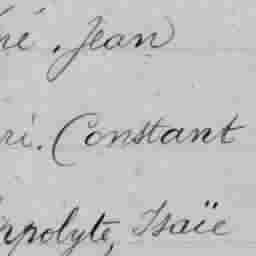 né, Jean
ri. Constant
ppolyte, Isaïe